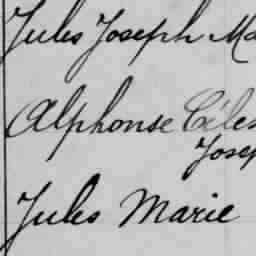 Jules Joseph Ma
Alphonse Céles
Josep
Jules Marie